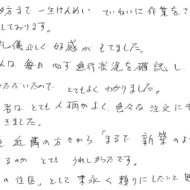 方まで一生けんめい ていねいに作業をさ
しております。
し儀正しく 好感が もてました。
んは 毎日 必ず 進行状況を 確認し
ただいたので とてもよく わかりました。
者は とても 人柄のよく、色々な 注文にも
きました。
近隣の方々から「まるで 新築のよ
るのが とても うれしかったです。
の住民」として 末永く 頼りにしたいと